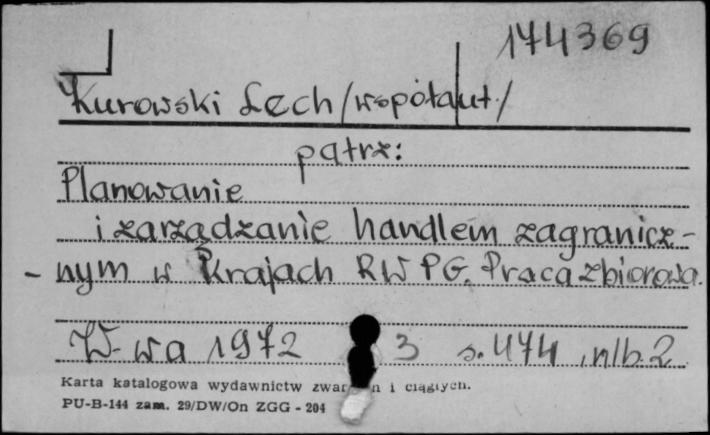 174369
Kurowski Lech /współaut./
patrz:
Planowanie
i zarządzanie handlem zagranicz-
- nym w krajach RWPG. Praca zbiorowa.
W-wa 1972 3 s. 474, nlb. 2
Karta katalogowa wydawnictw i ciągłych.
PU-B-144 zam. 29/DW/On ZGG - 204